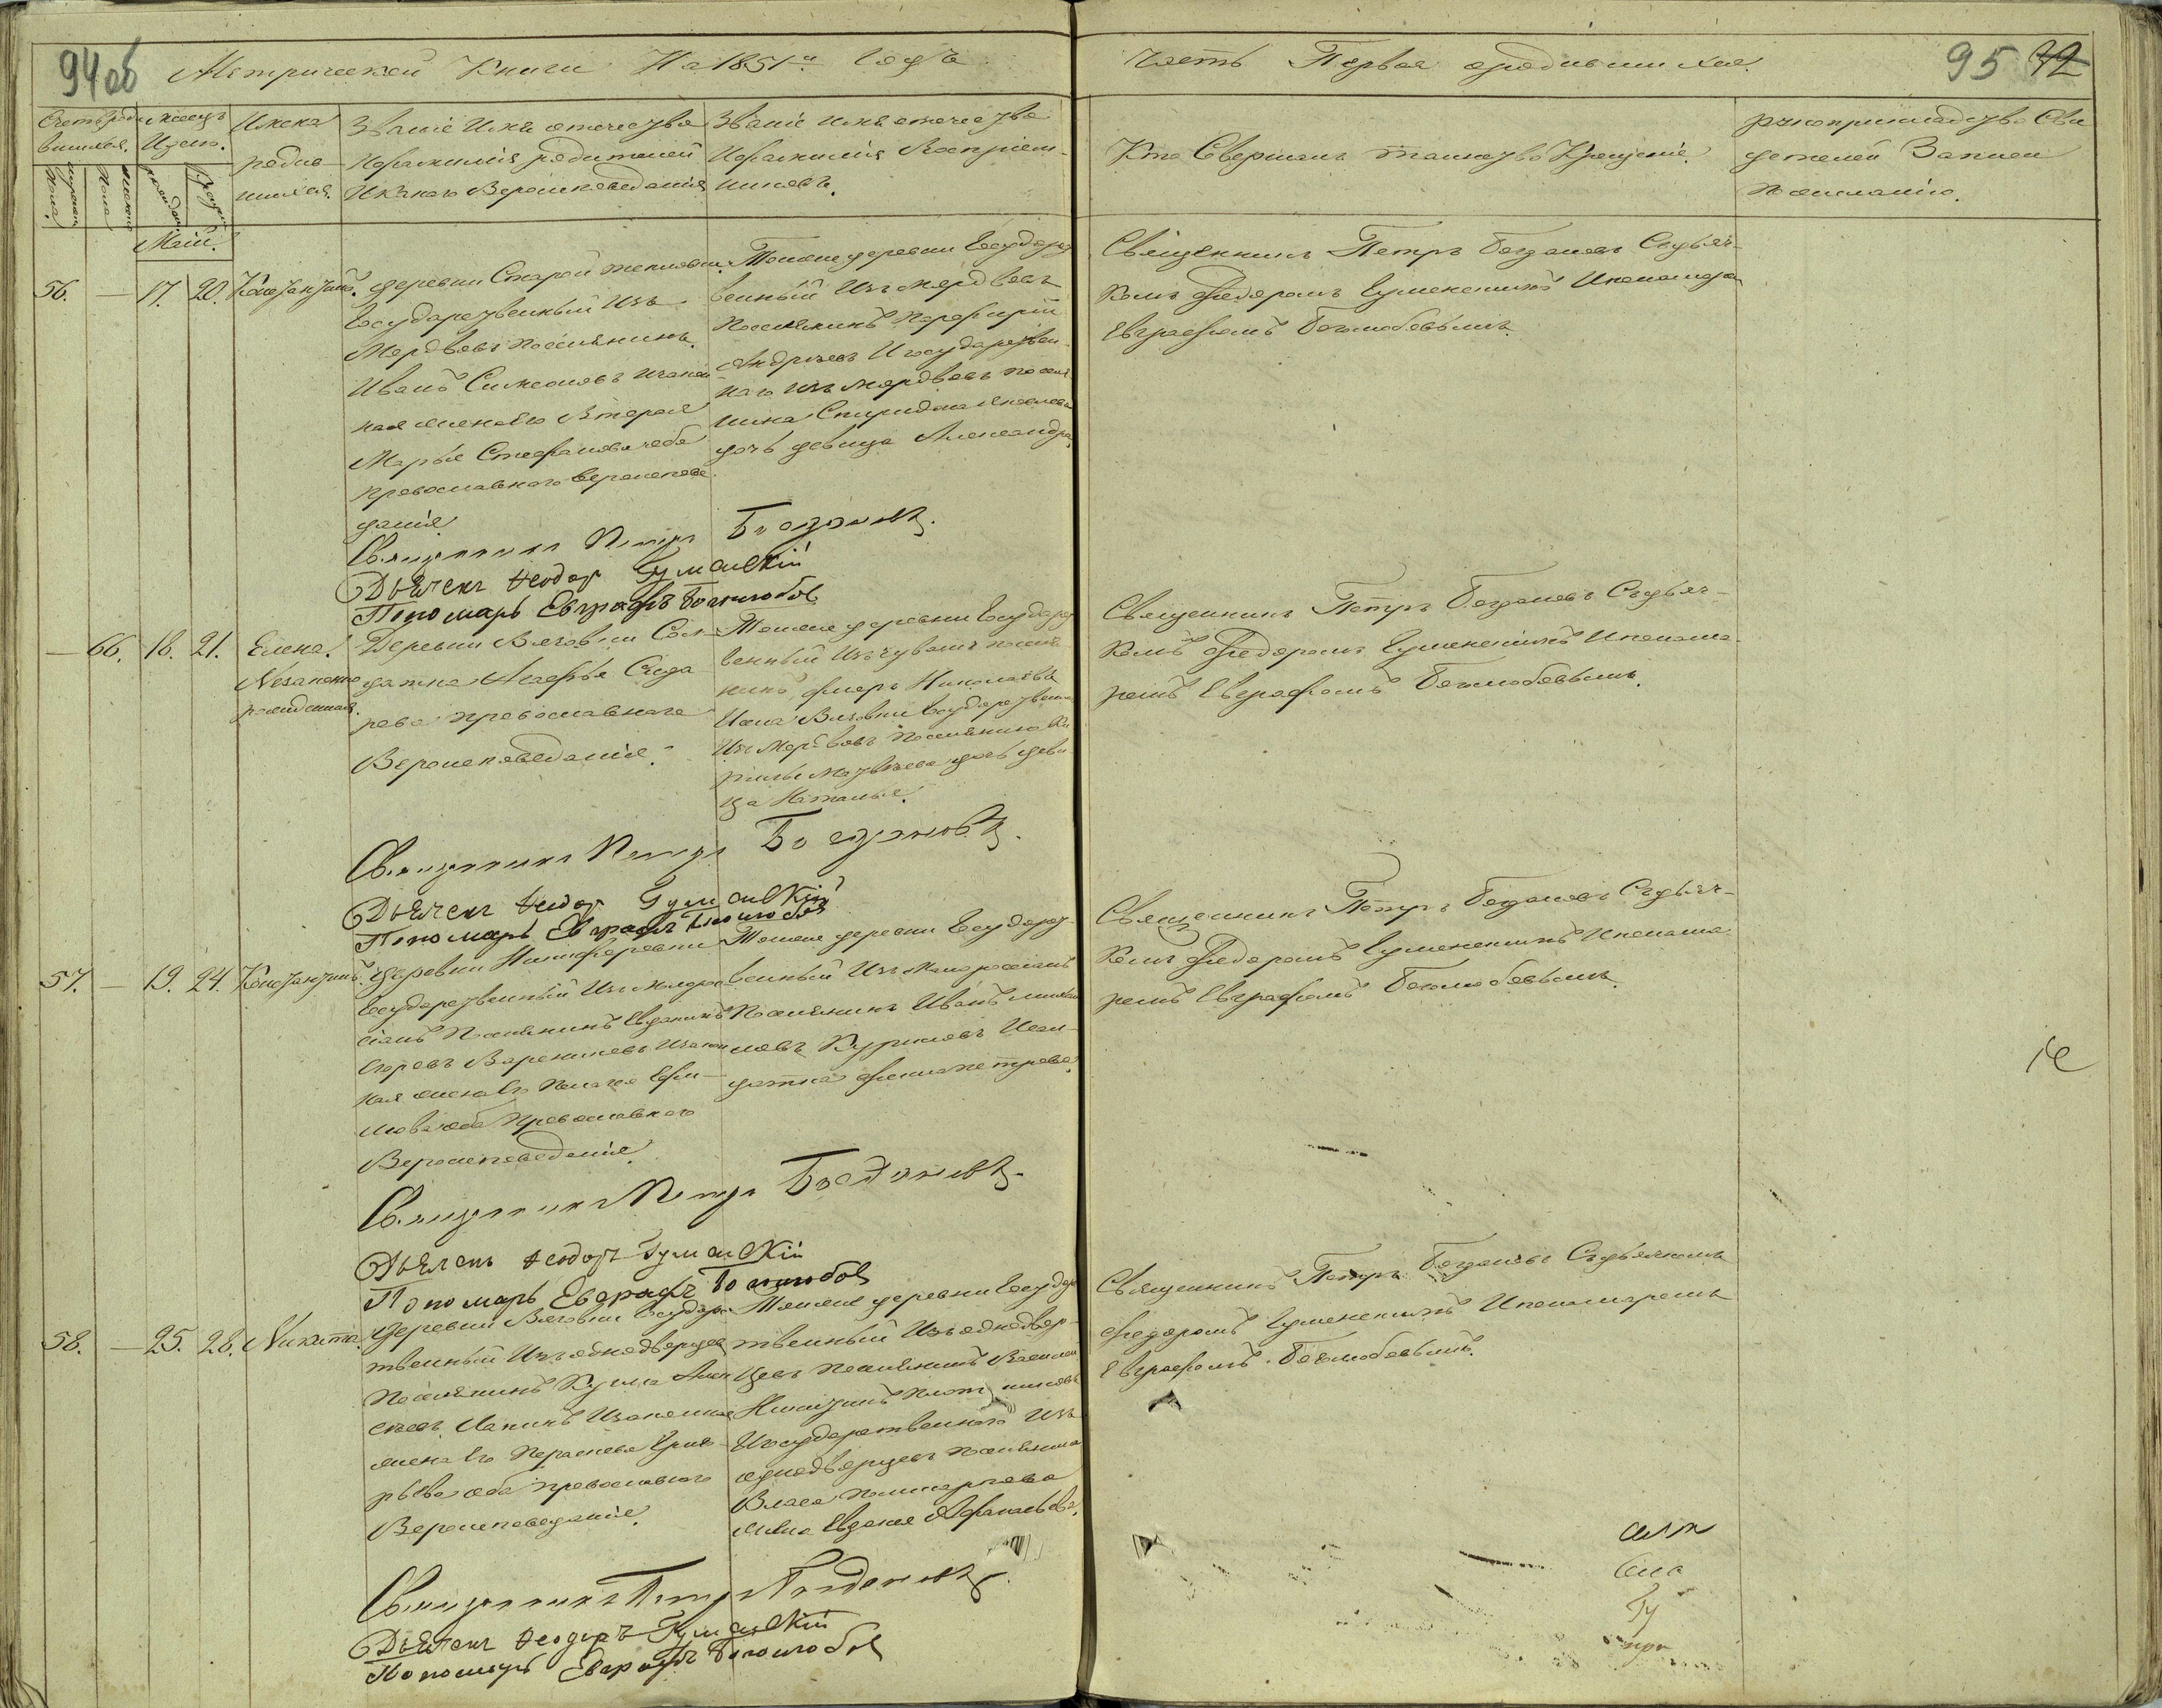 94 об
Метрической Книги На 1851й годъ
часть Первая о родившихся.
95 72
Счетъ роди
вшихся.
мѣсяцъ
И день.
Имена
родив
шихся.
Званіе Имя отечество
И фамилія родителей
И какого Вероисповеданія
Званіе имя отечество
И фамилія Воспріем-
никовъ.
Кто Совершалъ таинство Крещенія.
рукоприкладство Сви
детелей Записи
по желанію.
мужеска
пола.
женска
пола
рожденія
Крещенія
Маій.
56. — 17. 20. Константинъ.
деревни Старой
Государственный Изъ
Мордвовъ поселянинъ
Иванъ Симеоновъ и закон
ная жена его Вторая
Марья Стефанова оба
православнаго вероиспове
данія
Тоже деревни Государст
венный Изъ мордвовъ
поселянинъ Порфирій
Андреевъ И государствен-
наго изъ мордвовъ поселя
нина Спиридона Яковлева
дочь девица Александра.
Священникъ Петръ Богдановъ Съ дьяч-
комъ Федоромъ Гуменскимъ И пономаре
Евграфомъ Боголюбовымъ.
Священникъ Петръ Богдановъ.
Дьячекъ Феодоръ Гуменскій
Пономарь Евграфъ Боголюбовъ
— 66. 18. 21. Елена
Незаконно
рожденная.
Деревни Вязовки Сол-
датка Агафья Сидо
рова православнаго
Вероисповеданія.
Тоже деревни Государст
венный Изъ чувашъ поселя
нинъ Николаевъ
И села Вязовки Государственна
Изъ Мордвовъ поселянина Ки
рилы Матвеева дочь деви
ца Наталья.
Священникъ Петръ Богдановъ Съ дьяч-
комъ Федоромъ Гуменскимъ И понома-
ремъ Евграфомъ Боголюбовымъ.
Священникъ Петръ Богдановъ.
Дьячекъ Феодоръ Гуменскій
Пономарь Евграфъ Боголюбовъ
57. — 19. 24. Константинъ.
деревни Никифоровки
Государственный Изъ Малорос
сіанъ Поселянинъ Евдокимъ
Егоровъ И закон
ная жена его Ефи-
мова оба православнаго
Вероисповеданія.
Тоже деревни Государст-
венный Изъ Малороссіанъ
Поселянинъ Иванъ
И сол-
датка петрова.
Священникъ Петръ Богдановъ Съ дьяч-
комъ Федоромъ Гуменскимъ И понома-
ремъ Евграфомъ Боголюбовымъ.
Священникъ Петръ Богдановъ.
Дьячекъ Феодоръ Гуменскій
Пономарь Евграфъ Боголюбовъ
58. — 25. 28. Никита.
деревни Вязовки Государс
твенный Изъ однодворцевъ
Поселянинъ Кузма Алек
сеевъ И законная
жена его Парасковья Григо-
рьева оба православнаго
Вероисповеданія.
Тоже деревни Государс
твенный Изъ однодвор-
цевъ поселянинъ Василій
Никитинъ Плотниковъ
И государственнаго Изъ
однодворцевъ поселянина
Власа Поликарпова
жена Евдокея Афанасьева.
Священникъ Петръ Богдановъ Съ дьячкомъ
Федоромъ Гуменскимъ И пономаремъ
Евграфомъ Боголюбовымъ.
Священникъ Петръ Богдановъ.
Дьячекъ Феодоръ Гуменскій
Пономарь Евграфъ Боголюбовъ